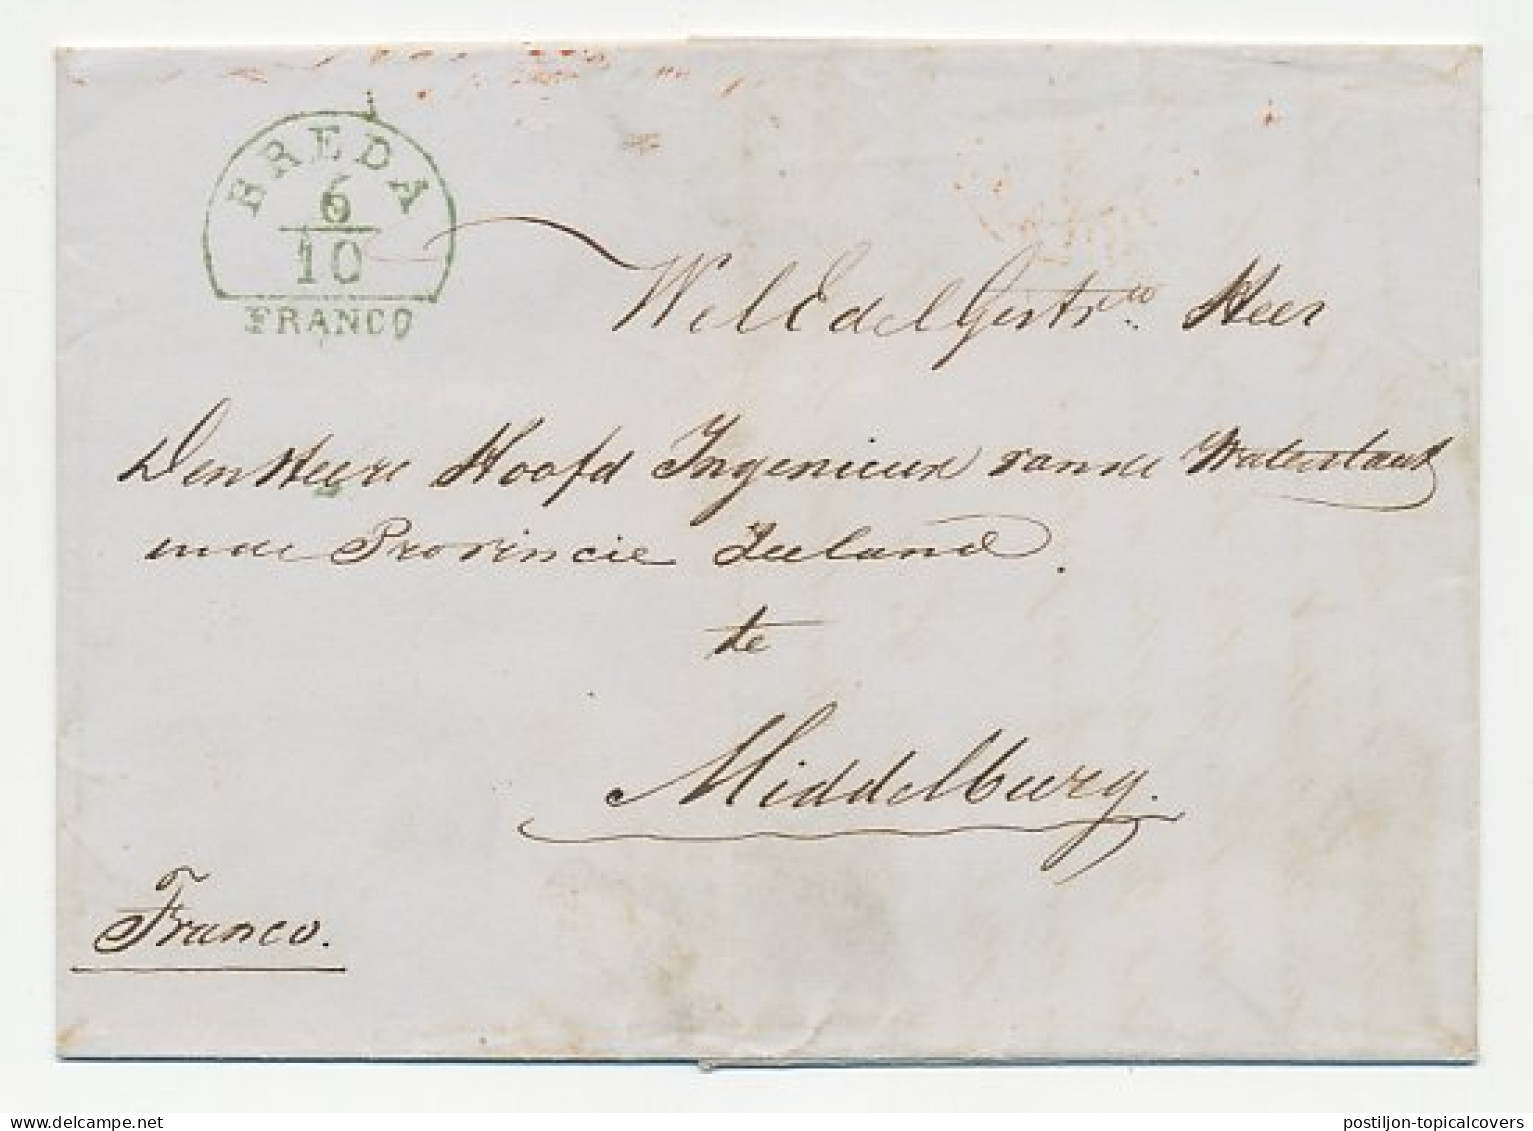 BREDA
6
10
FRANCO
WelEdelGestr. Heer
Den Heere Hoofd Ingenieur van de Waterstaat
in de Provincie Zeeland.
te
Middelburg.
Franco.
postiljon-topicalcovers